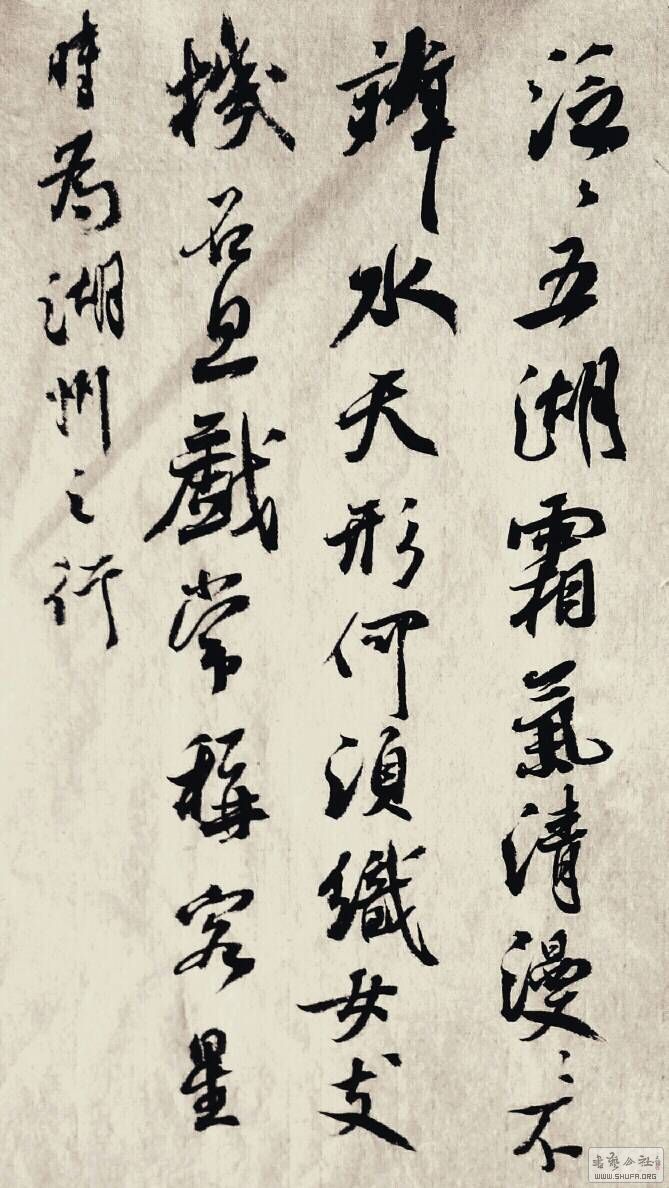 泛〻五湖霜氣清漫〻不
辨水天形何須織女支
機石且戲常稱客星
時為湖州之行
書藝公社
WWW.SHUFA.ORG